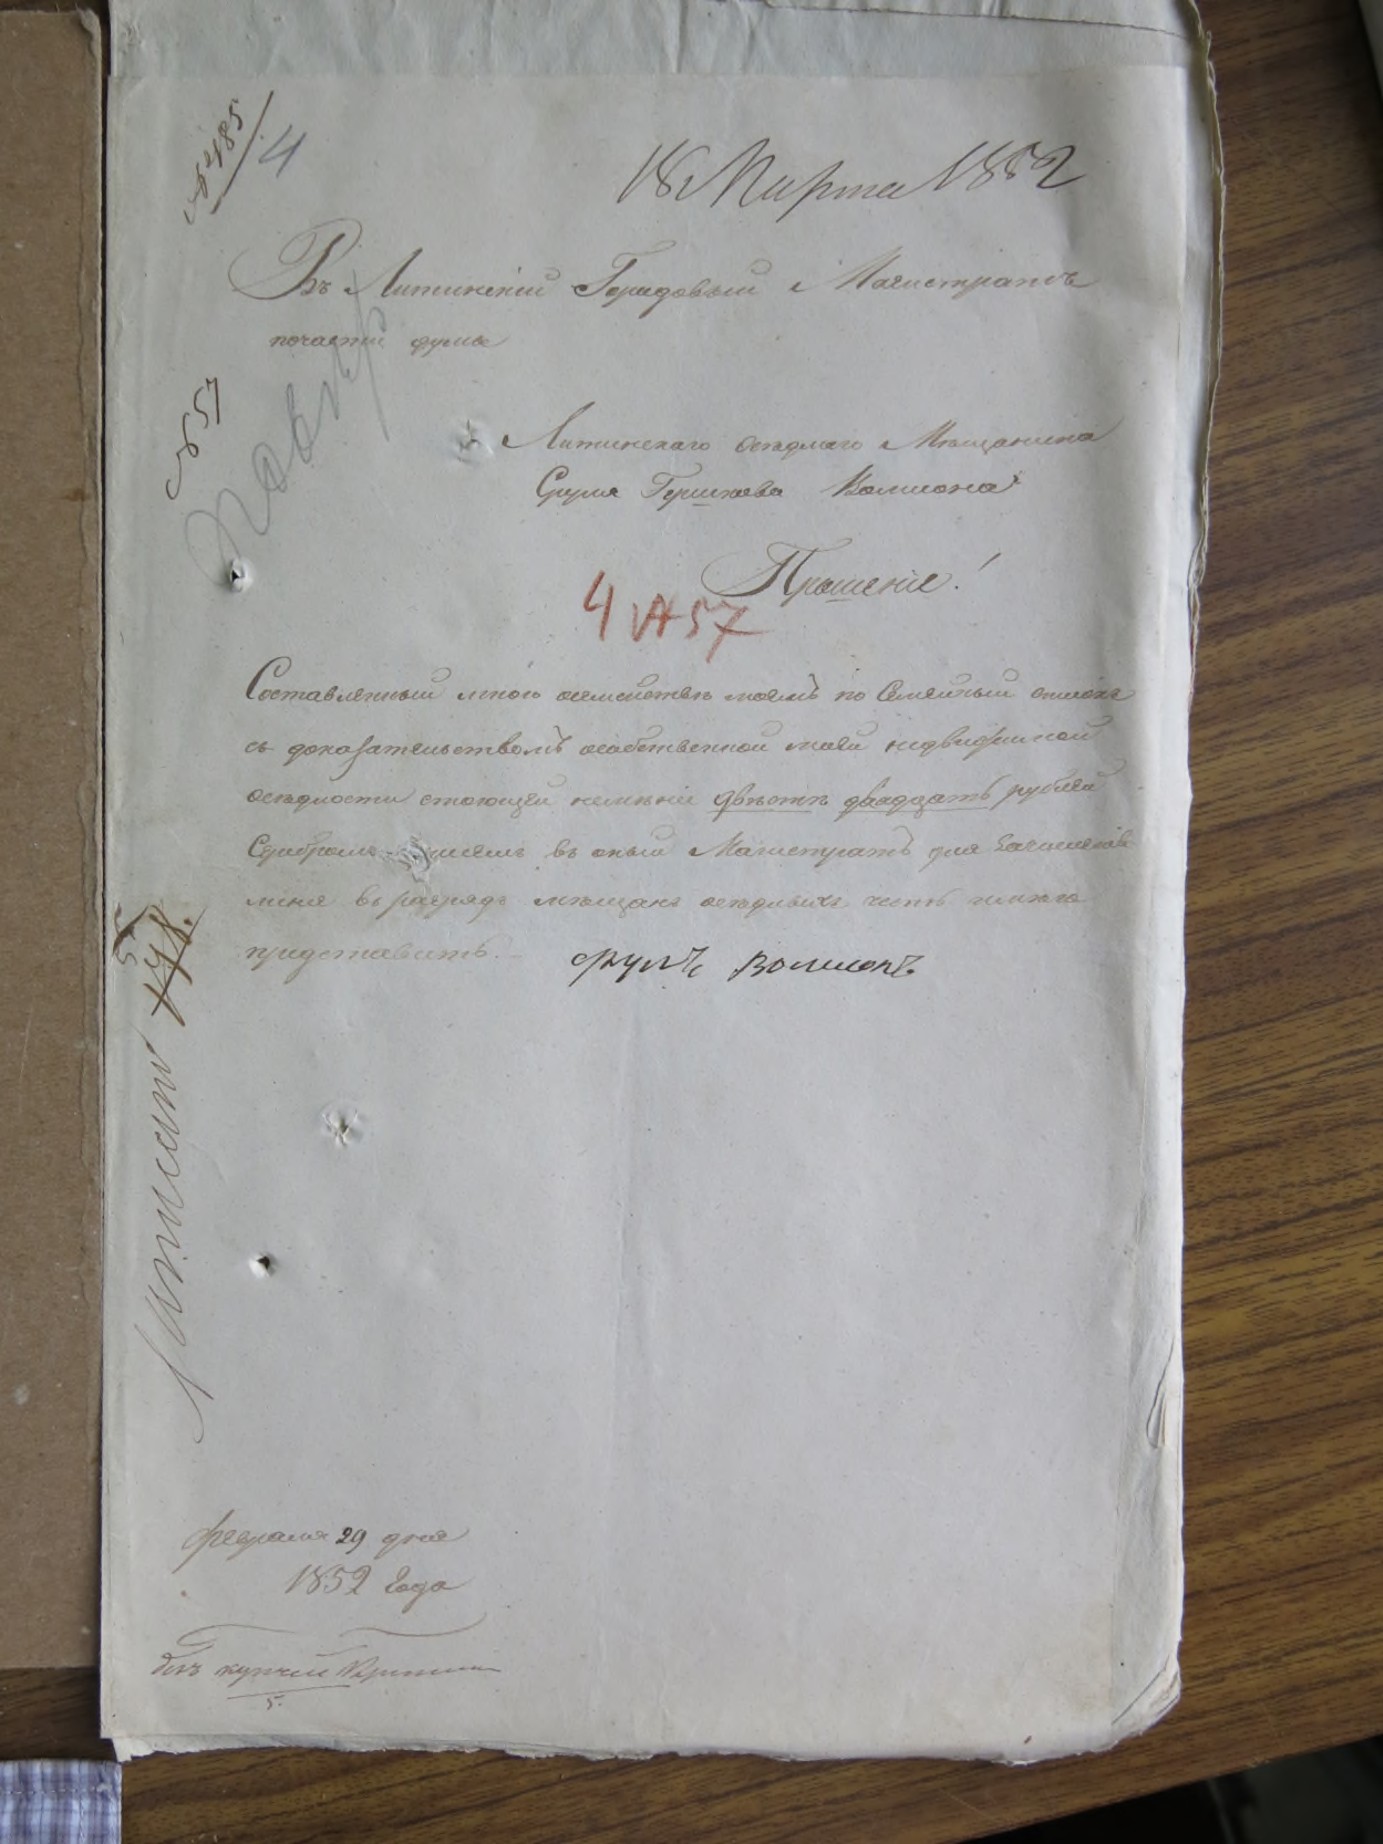 № 485
4
18 Марта 1852
Въ Литинскій Городовый Магистратъ
почасти думы
№ 57
Литинскаго оседлаго Мещанина
Сруля Гершкова Волшона
Прошеніе!
4 № 57
Составленный мною о семействѣ моемъ по Семейный списокъ
съ доказательствомъ о собственной моей недвижимой
осѣдлости стоющей неменѣе двѣсти двадцать рублей
Серебромъ въ оный Магистратъ для
меня въ разрядъ мѣщанъ осѣдлыхъ честь имѣю
представить.
Сруль Волшонъ
5
178.
Февраля 29 дня
1852 Года
безъ купчей Крепости
5.